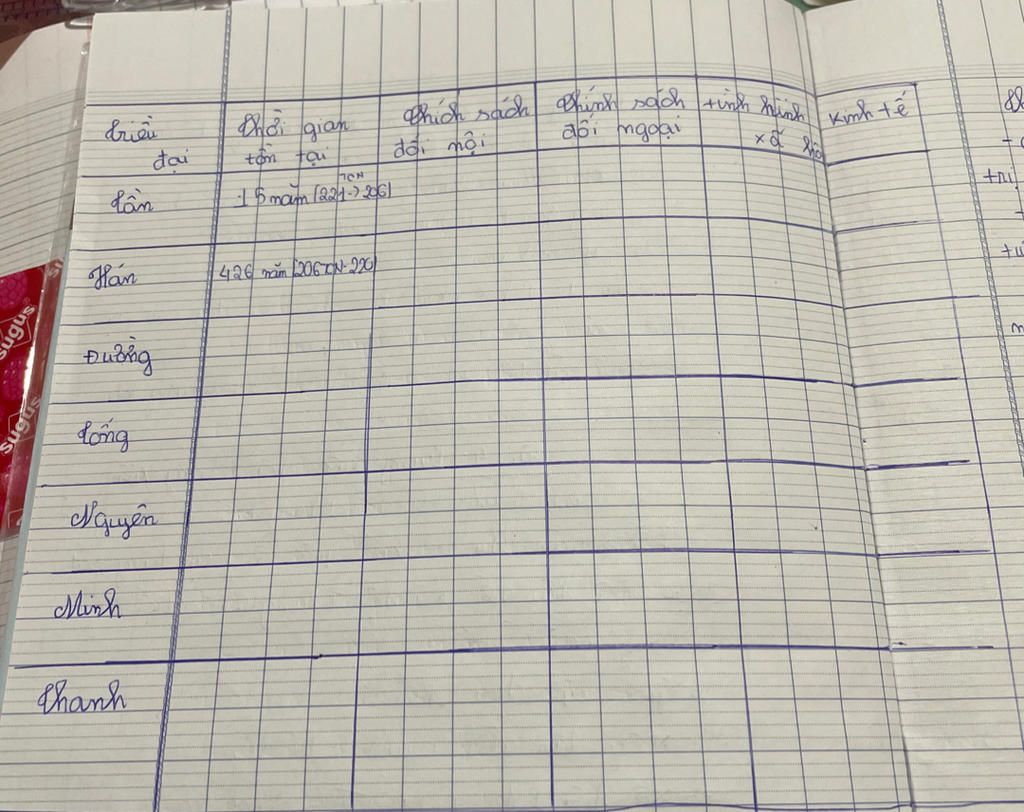 triều đại
thời gian tồn tại
Chích sách đối nội
Chính sách đối ngoại
tình hình xã hội
Kinh tế
tần
15 năm (221 TCN -> 206)
Hán
426 năm (206 TCN - 220)
Đường
tống
Nguyên
Minh
thanh
sugus
sugus